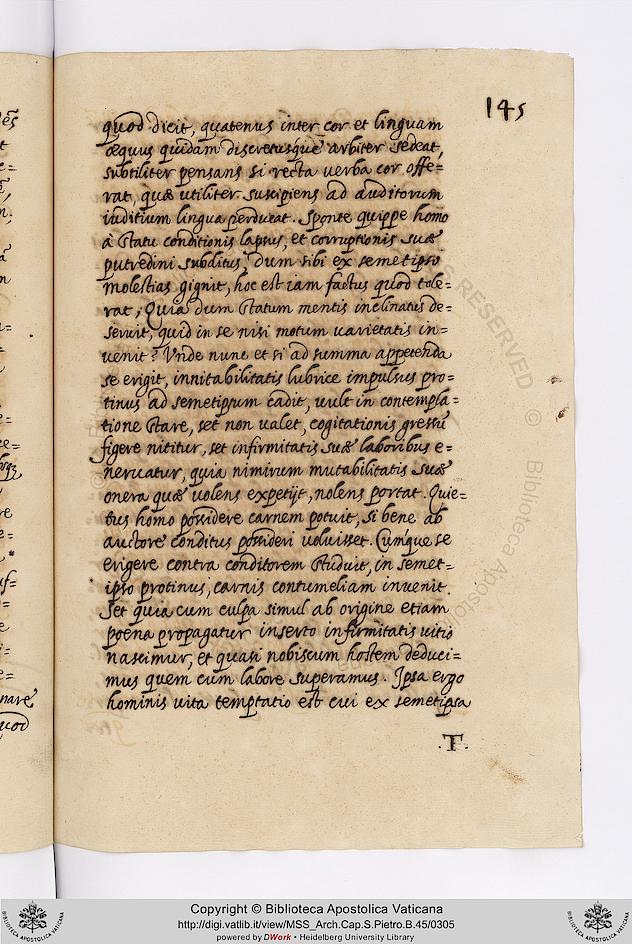 145
quod dicit, quatenus inter cor et linguam
æquus quidam discretusque arbiter sedeat,
subtiliter pensans si recta verba cor offe=
rat, quæ utiliter suscipiens ad auditorum
iuditium lingua perducat. Sponte quippe homo
à statu conditionis lapsus, et corruptionis suæ
putredini subditus, dum sibi ex semetipso
molestias gignit, hoc est iam factus quod tole=
rat, Quia dum statum mentis inclinatus de=
seruit, quid in se nisi motum varietatis in=
venit? Vnde nunc et si ad summa appetenda
se erigit, innitabilitatis lubrice impulsus pro=
tinus ad semetipsum cadit, vult in contempla=
tione stare, set non valet, cogitationis gressũ
figere nititur, set infirmitatis suæ laboribus e=
neruatur, quia nimirum mutabilitatis suæ
onera quæ volens expetijt, nolens portat. Quie=
tus homo possidere carnem potuit, si bene ab
auctore conditus possideri voluisset. Cumque se
erigere contra conditorem studuit, in semet=
ipso protinus, carnis contumeliam invenit.
Set quia cum culpa simul ab origine etiam
poena propagatur inserto infirmitatis vitio
nascimur, et quasi nobiscum hostem deduci=
mus quem cum labore superamus. Ipsa ergo
hominis vita temptatio est cui ex semetipsa
.T.
Copyright © Biblioteca Apostolica Vaticana
http://digi.vatlib.it/view/MSS_Arch.Cap.S.Pietro.B.45/0305
powered by DWork • Heidelberg University Library